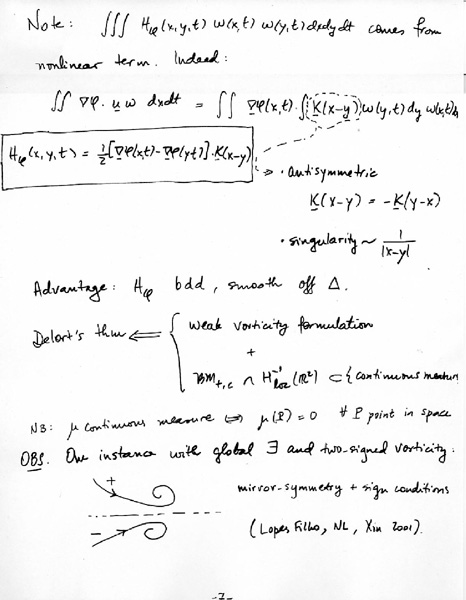 Note: ∭ H_φ(x,y,t) ω(x,t) ω(y,t) dxdydt comes from
nonlinear term. Indeed:
∬ ∇φ · u ω dxdt = ∬ ∇φ(x,t) · ∫ K(x-y) ω(y,t) dy ω(x,t) dx
H_φ(x,y,t) = 1/2 [∇φ(x,t) - ∇φ(y,t)] · K(x-y)
· antisymmetric
K(x-y) = -K(y-x)
· singularity ~ 1/|x-y|
Advantage: H_φ bdd, smooth off Δ.
Delort's thm ⇐ { weak vorticity formulation
+
BM_{+,c} ∩ H^{-1}_{loc}(ℝ²) ⊂ { continuous measures
NB: μ continuous measure ⇔ μ(P) = 0 ∀ P point in space
OBS. One instance with global ∃ and two-signed vorticity:
+
mirror-symmetry + sign conditions
−
(Lopes Filho, NL, Xin 2001).
-7-